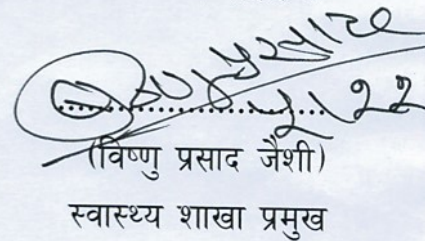 २।२२
(विष्णु प्रसाद जैशी)
स्वास्थ्य शाखा प्रमुख